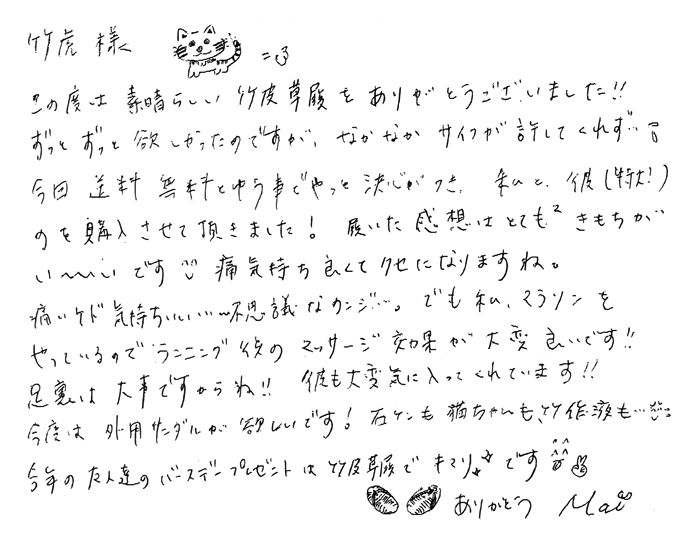 竹虎 様
この度は 素晴らしい 竹皮草履を ありがとうございました!!
ずっと ずっと 欲しかったのですが、なかなか サイフが 許してくれず…
今回 送料 無料とゆう事でやっと 決心がつき、私と、彼(特大!)
のを 購入させて頂きました! 履いた 感想は とても² きもちが
い〜いです 痛気持ち良くてクセになりますね。
痛いケド 気持ちいい…〜不思議なカンジ…。でも 私、マラソンを
やっているので ランニング後の マッサージ 効果が 大変 良いです!!
足裏は 大事ですからね!! 彼も大変気に入ってくれています!!
今度は 外用サンダルが 欲しいです! 石ケンも 猫ちゃんも、竹作液も…
今年の友人達の バースデープレゼントは 竹皮草履で キマリ☆ です
ありがとう Mai